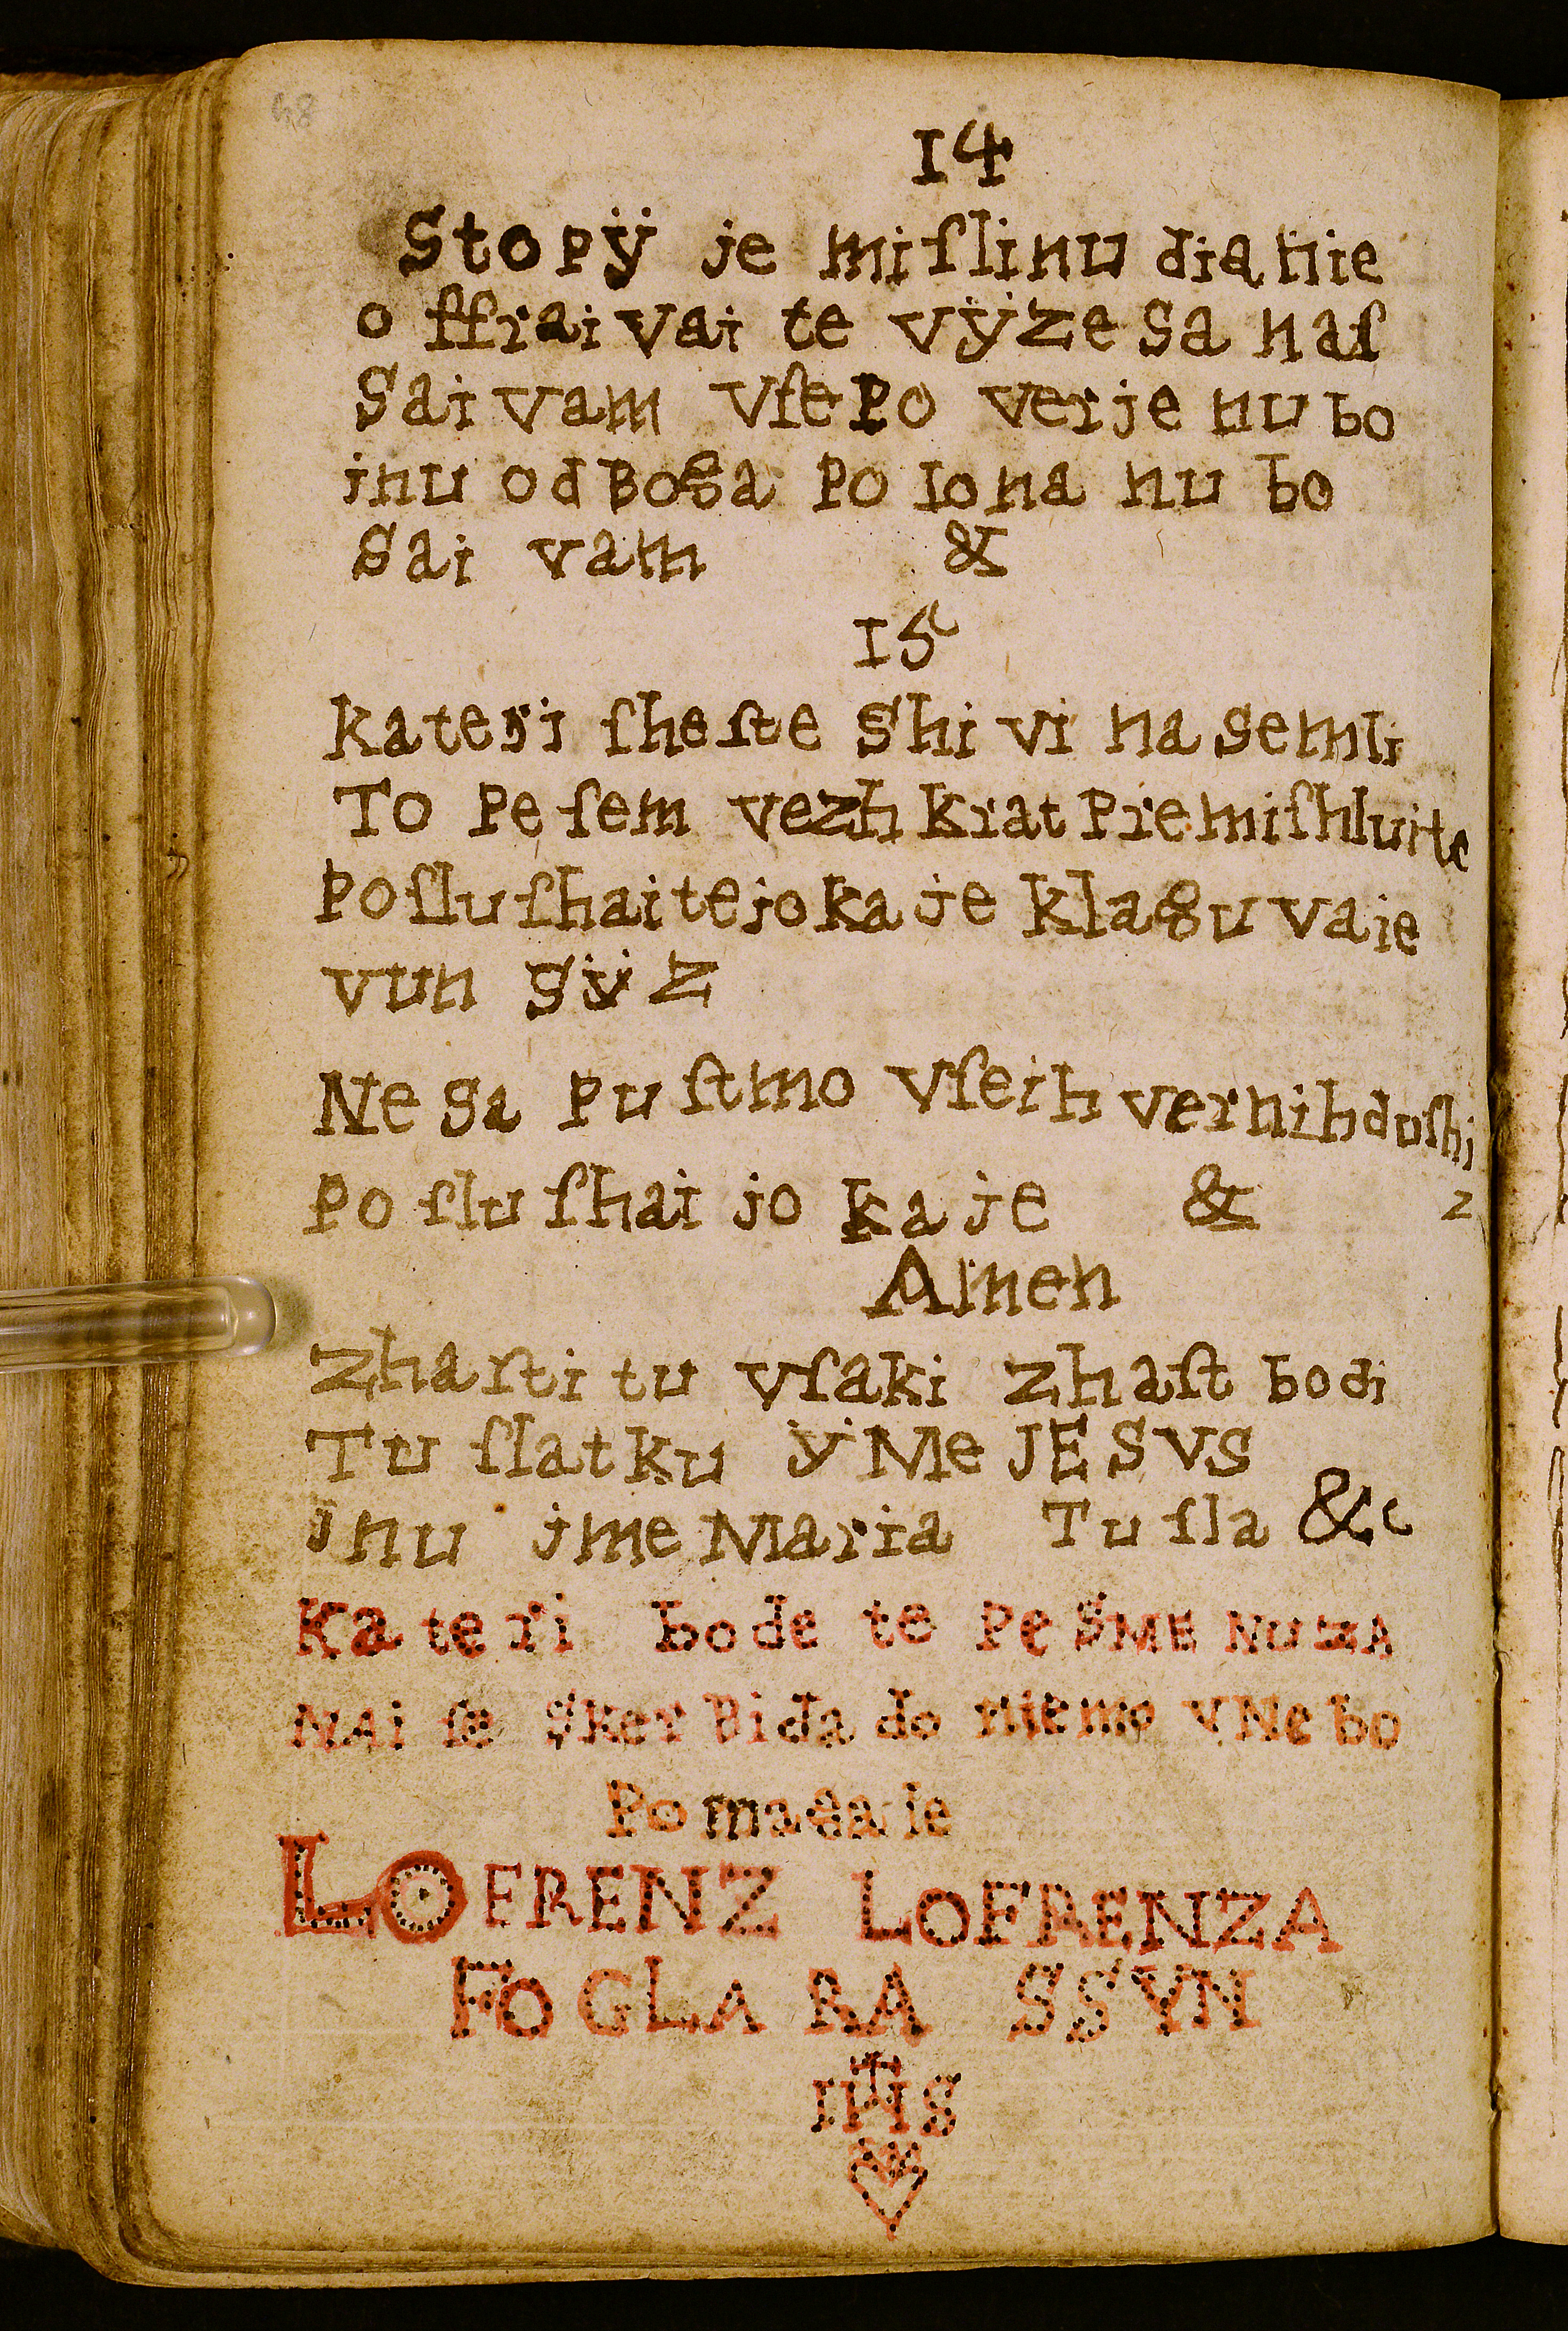 48
14
Stopÿ je miſlinu dianie
o ffraivai te vÿze sa naſ
Sai vam Vſe Po verje nu bo
jnu od Boga Po Iona nu bo
Sai vam &
15
Kateri ſheſte Shi vi na semli
To Pe ſem vezh Krat Premiſhluite
Poſluſhaite jo ka je Klaguvaie
vun sÿz
Ne sa puſtmo Vſeih vernih duſhi
Po ſlu ſhai jo ka je & z
Amen
Zhaſti tu vſaki zhaſt bodi
Tu ſlatku ÿMe JESVS
jnu jme Maria Tu ſla &c
Kateri bode te PeSME NuzA
NAi ſe SKerBi da do niemo vNebo
Pomagaie
LOFRENZ LOFRENZA
FOGLARA SSYN
IHS